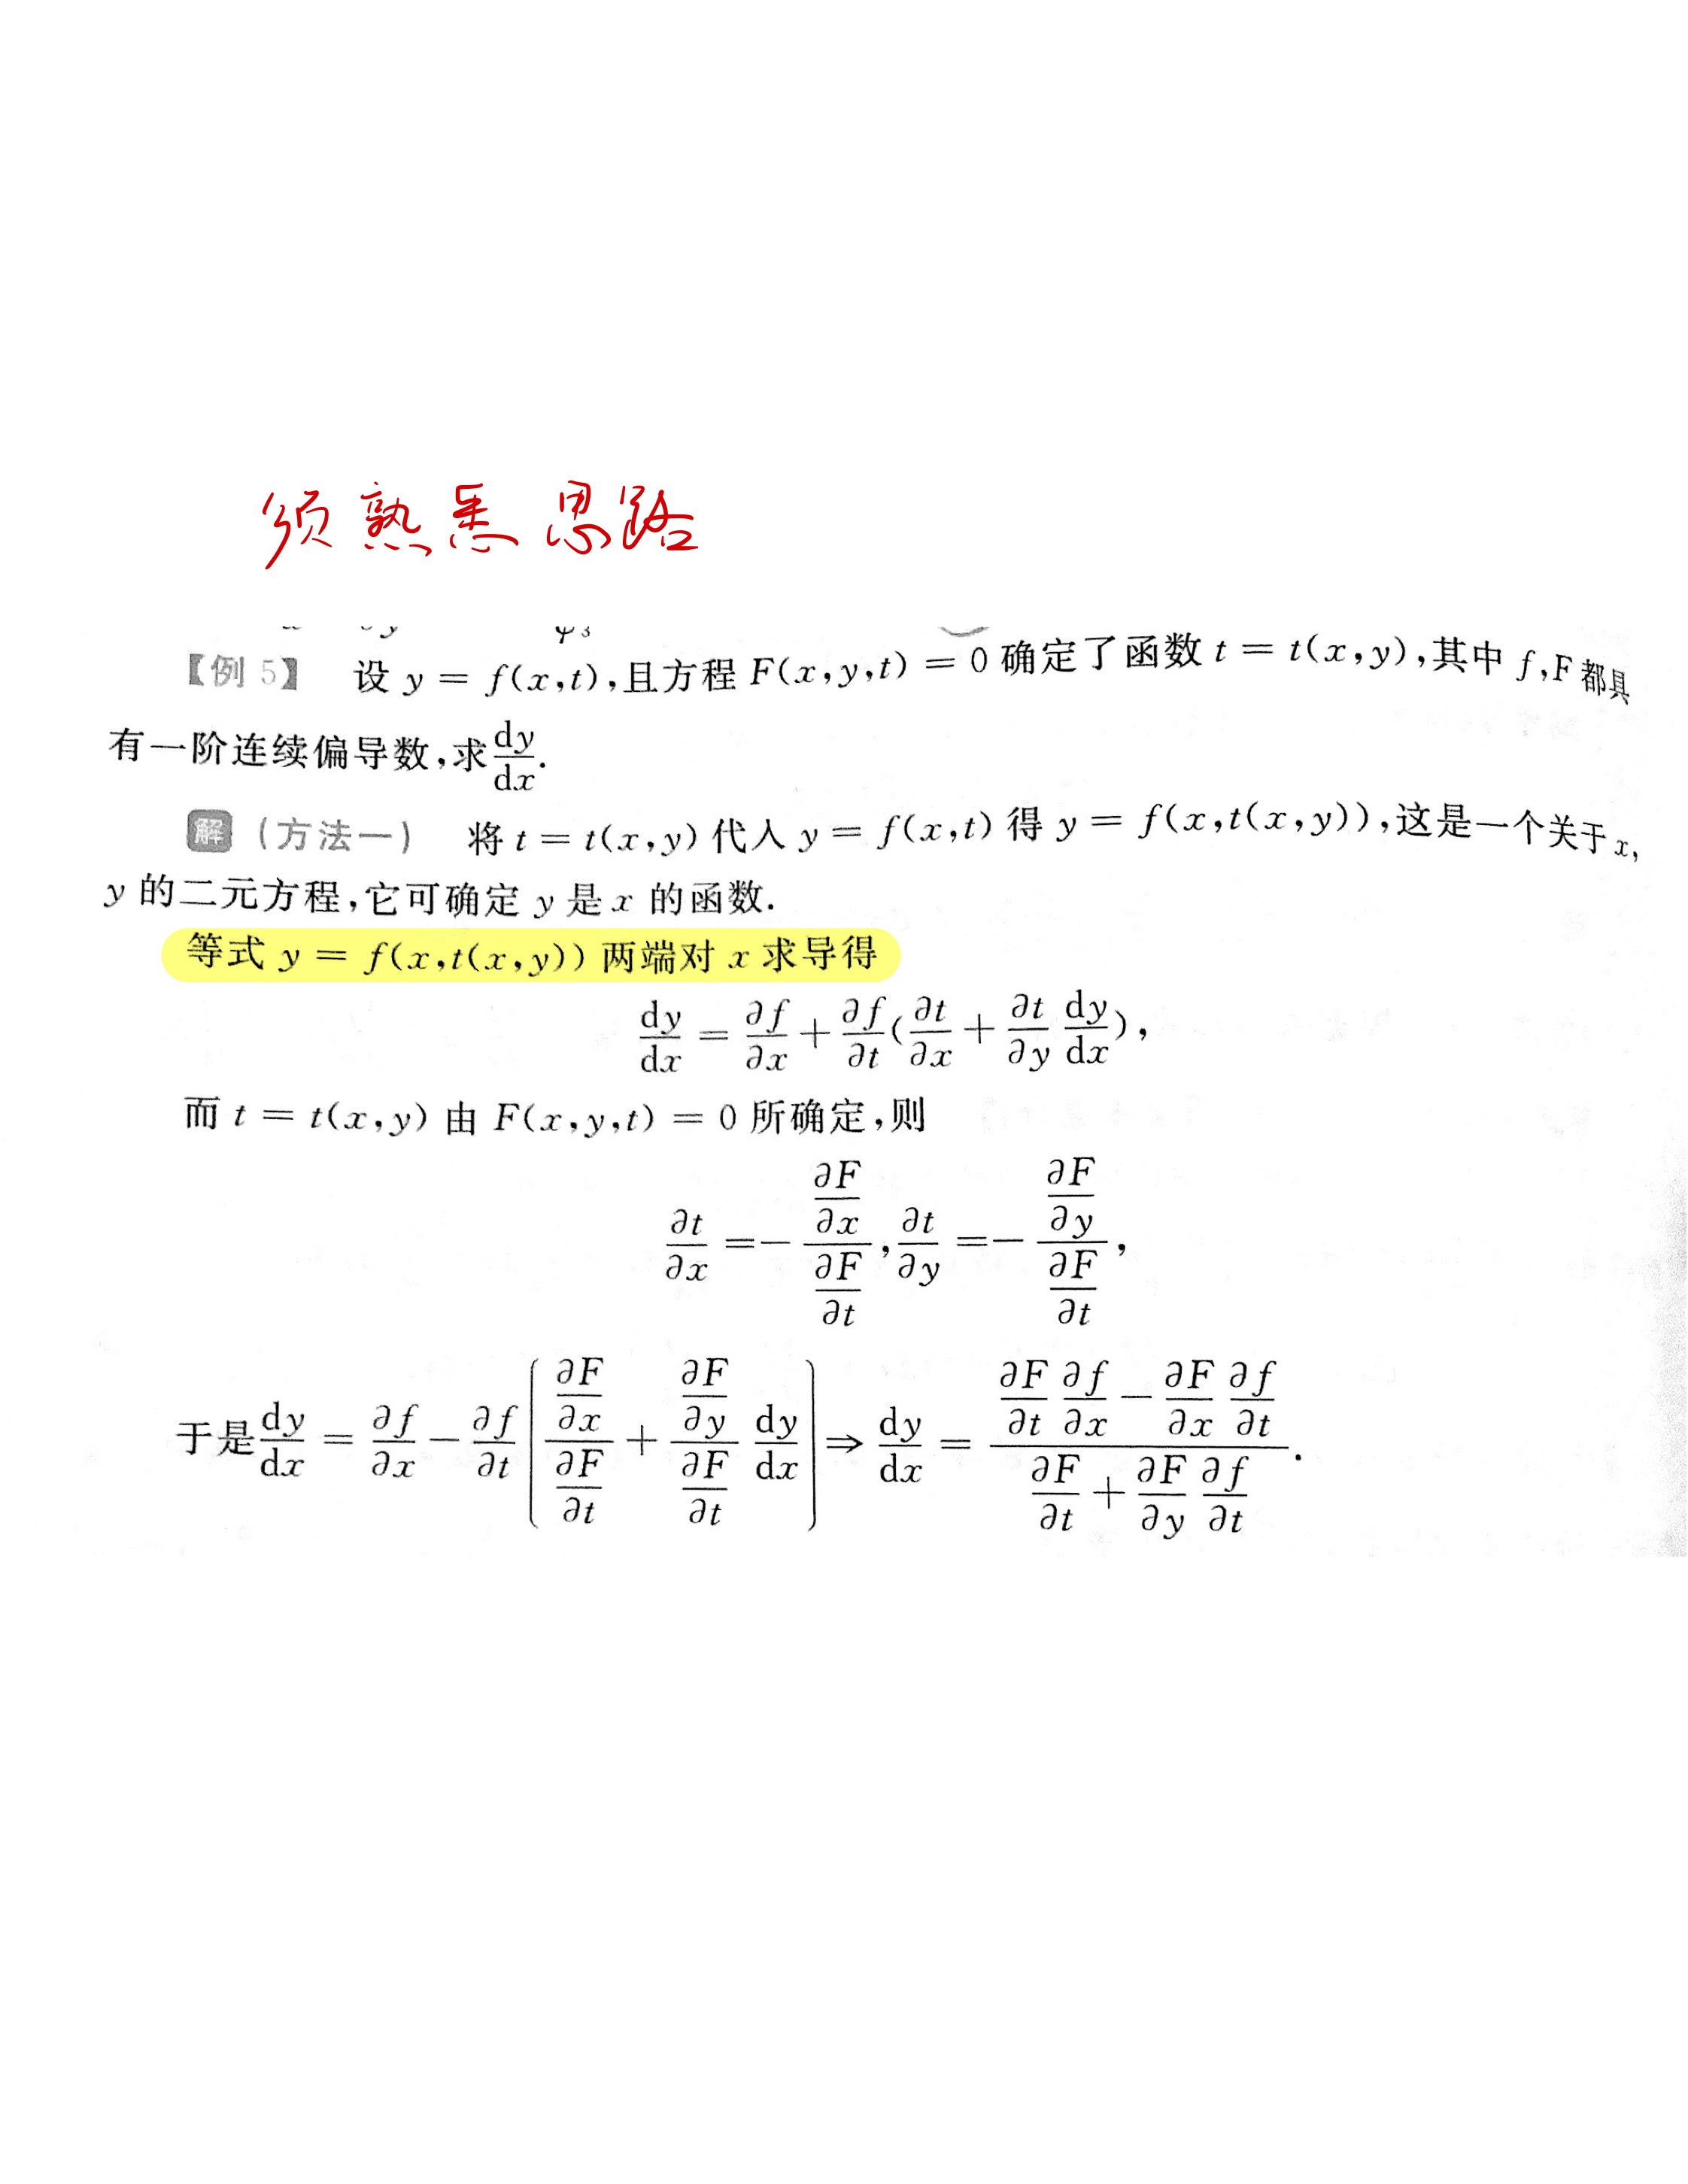 须熟悉思路
【例 5】 设 y = f(x,t),且方程 F(x,y,t) = 0 确定了函数 t = t(x,y),其中 f,F 都具
有一阶连续偏导数,求 dy/dx.
解 (方法一) 将 t = t(x,y) 代入 y = f(x,t) 得 y = f(x,t(x,y)),这是一个关于 x,
y 的二元方程,它可确定 y 是 x 的函数.
等式 y = f(x,t(x,y)) 两端对 x 求导得
dy/dx = ∂f/∂x + ∂f/∂t (∂t/∂x + ∂t/∂y dy/dx),
而 t = t(x,y) 由 F(x,y,t) = 0 所确定,则
∂t/∂x = − (∂F/∂x)/(∂F/∂t), ∂t/∂y = − (∂F/∂y)/(∂F/∂t),
于是 dy/dx = ∂f/∂x − ∂f/∂t ((∂F/∂x)/(∂F/∂t) + (∂F/∂y)/(∂F/∂t) dy/dx) ⇒ dy/dx = (∂F/∂t ∂f/∂x − ∂F/∂x ∂f/∂t)/(∂F/∂t + ∂F/∂y ∂f/∂t).